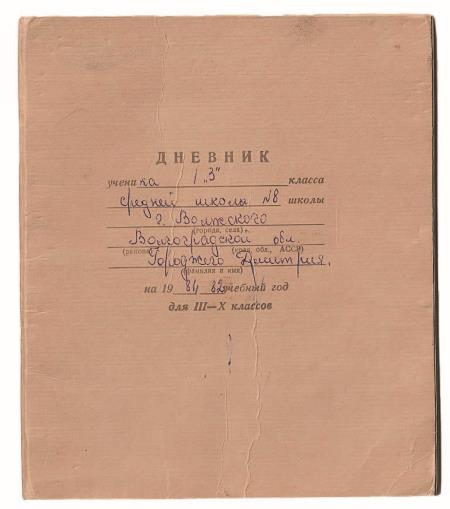 ДНЕВНИК
ученика 1 „З" класса
средней школы №8 школы
г. Волжского
(города, села)
Волгоградской обл.
(района) (края, обл., АССР)
Городжего Дмитрия.
(фамилия и имя)
на 19 81 82 учебный год
для III—X классов